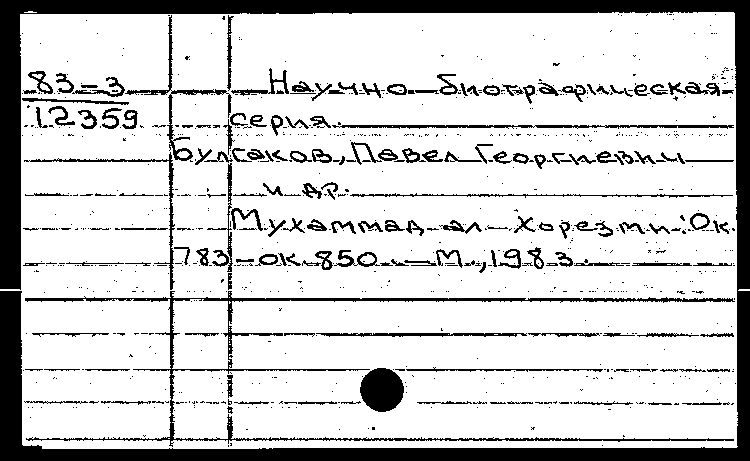 83-3 Научно-биографическая
12359 серия.
Булгаков, Павел Георгиевич
и др.
Мухаммад ал-Хорезми: Ок.
783-ок. 850. - М., 1983.